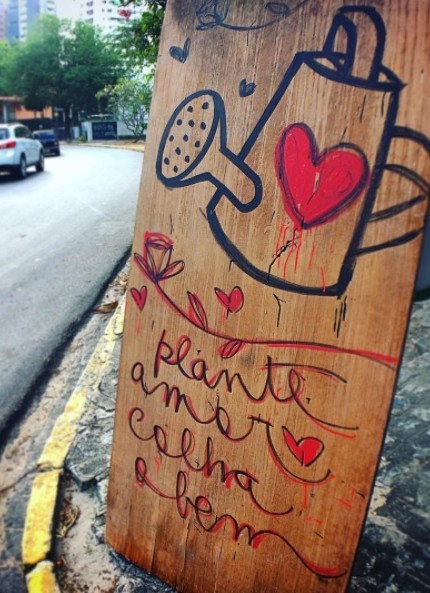 plante
amor
colha
o bem